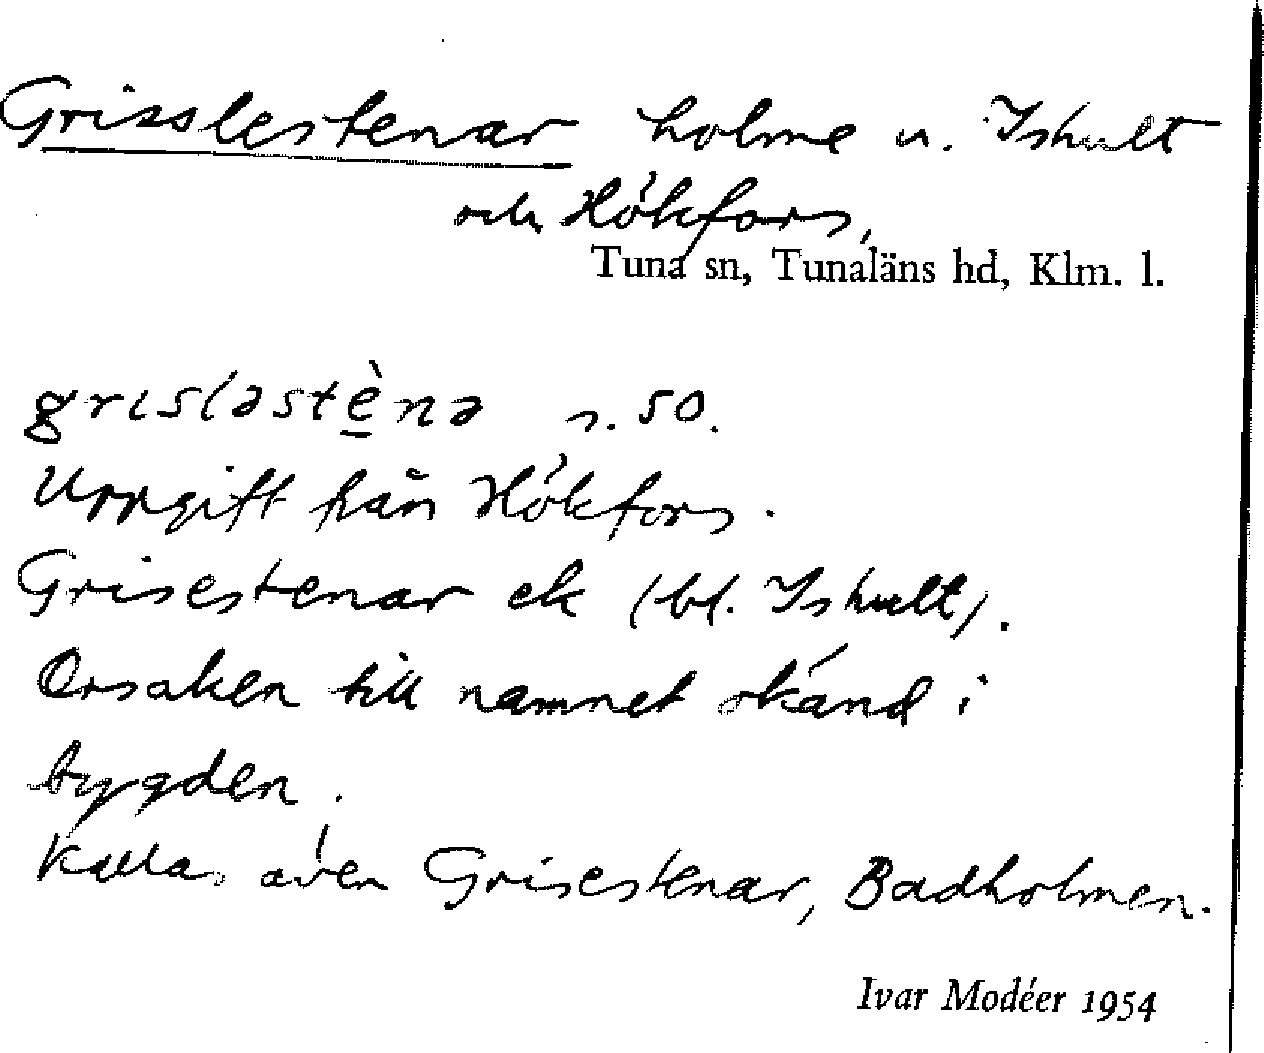 Grisslestenar holme u. Ishult
och Hökfors,
Tuna sn, Tunaläns hd, Klm. l.
grısləstènə s. 50.
Uppgift från Hökfors.
Grisestenar ek (bl. Ishult).
Orsaken till namnet okänd i
bygden.
Kallas även Grisestenar, Badholmen.
Ivar Modéer 1954